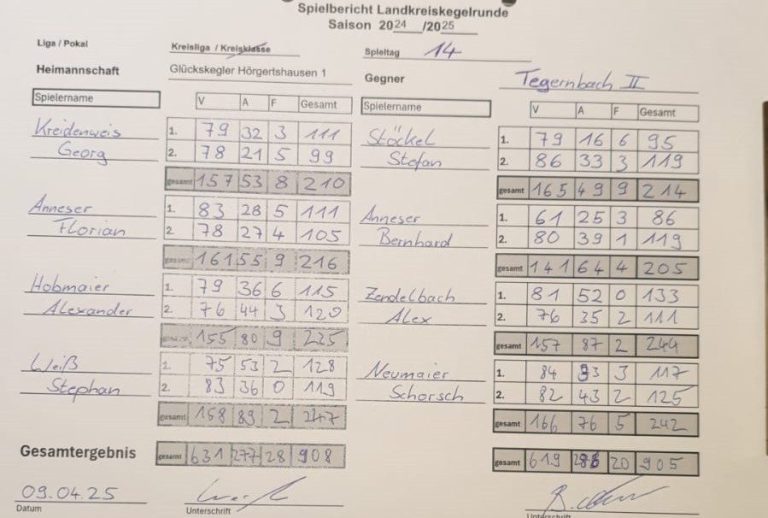 Spielbericht Landkreiskegelrunde
Saison 2024 /2025
Liga / Pokal Kreisliga / Kreisklasse Spieltag 14
Heimannschaft Glückskegler Hörgertshausen 1 Gegner Tegernbach II
Spielername V A F Gesamt Spielername V A F Gesamt
Kreidenweis 1. 79 32 3 111 Stöckel 1. 79 16 6 95
Georg 2. 78 21 5 99 Stefan 2. 86 33 3 119
gesamt 157 53 8 210 gesamt 165 49 9 214
Anneser 1. 83 28 5 111 Anneser 1. 61 25 3 86
Florian 2. 78 27 4 105 Bernhard 2. 80 39 1 119
gesamt 161 55 9 216 gesamt 141 64 4 205
Hobmaier 1. 79 36 6 115 Zendelbach 1. 81 52 0 133
Alexander 2. 76 44 3 120 Alex 2. 76 35 2 111
gesamt 155 80 9 225 gesamt 157 87 2 244
Weiß 1. 75 53 2 128 Neumaier 1. 84 33 3 117
Stephan 2. 83 36 0 119 Schorsch 2. 82 43 2 125
gesamt 158 89 2 247 gesamt 166 76 5 242
Gesamtergebnis gesamt 631 277 28 908 gesamt 619 286 20 905
09.04.25
Datum Unterschrift Unterschrift